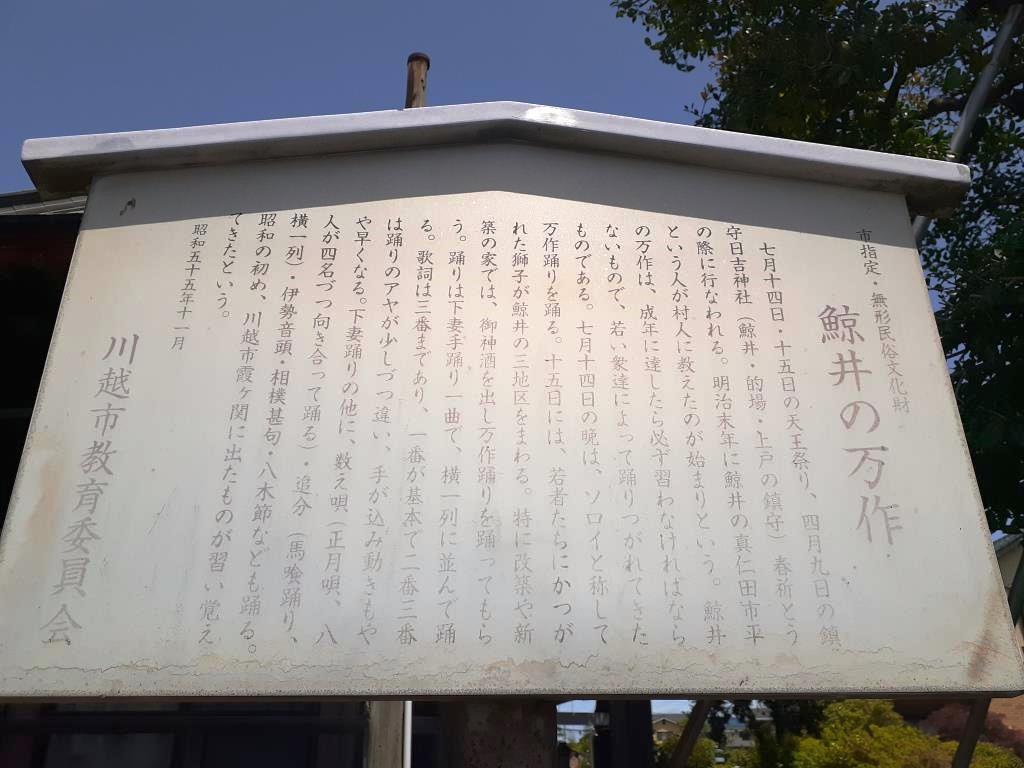 市指定・無形民俗文化財
鯨井の万作
七月十四日・十五日の天王祭り、四月九日の鎮
守日吉神社（鯨井・的場・上戸の鎮守）春祈とう
の際に行なわれる。明治末年に鯨井の真仁田市平
という人が村人に教えたのが始まりという。鯨井
の万作は、成年に達したら必ず習わなければなら
ないもので、若い衆達によって踊りつがれてきた
ものである。七月十四日の晩は、ソロイと称して
万作踊りを踊る。十五日には、若者たちにかつが
れた獅子が鯨井の三地区をまわる。特に改築や新
築の家では、御神酒を出し万作踊りを踊ってもら
う。踊りは下妻手踊り一曲で、横一列に並んで踊
る。歌詞は三番まであり、一番が基本で二番三番
は踊りのアヤが少しづつ違い、手が込み動きもや
や早くなる。下妻踊りの他に、数え唄（正月唄、八
人が四名づつ向き合って踊る）・追分（馬喰踊り、
横一列）・伊勢音頭・相模甚句・八木節なども踊る。
昭和の初め、川越市霞ヶ関に出たものが習い覚え
てきたという。
昭和五十五年十一月
川越市教育委員会